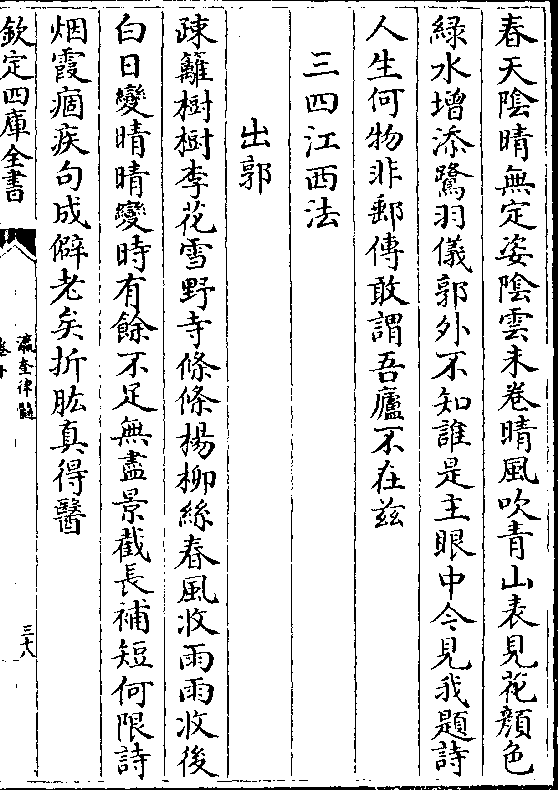 春天陰晴無定姿陰雲未卷晴風吹青山表見花顔色
緑水增添鷺羽儀郭外不知誰是主眼中今見我題詩
人生何物非郵傳敢謂吾廬不在兹
三四江西法
出郭
疎籬樹樹李花雪野寺條條楊柳絲春風收雨雨收後
白日變晴晴變時有餘不足無盡景截長補短何限詩
烟霞痼疾句成僻老矣折肱真得醫
欽定四庫全書
瀛奎律髓
三十八